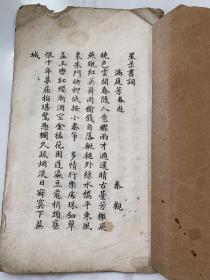 書詞
滿庭芳春遊
秦觀
曉色雲開春隨人意驟雨才過還晴古臺芳榭飛
燕蹴紅英舞困榆錢自落鞦韆外綠水橋平東風
裏朱門映柳低按小秦箏 多情行樂處珠鈿翠
蓋玉轡紅纓漸酒空金榼花困蓬瀛豆蔻梢頭舊
恨十年夢屈指堪驚憑欄久疏烟淡日寂寞下蕪
城